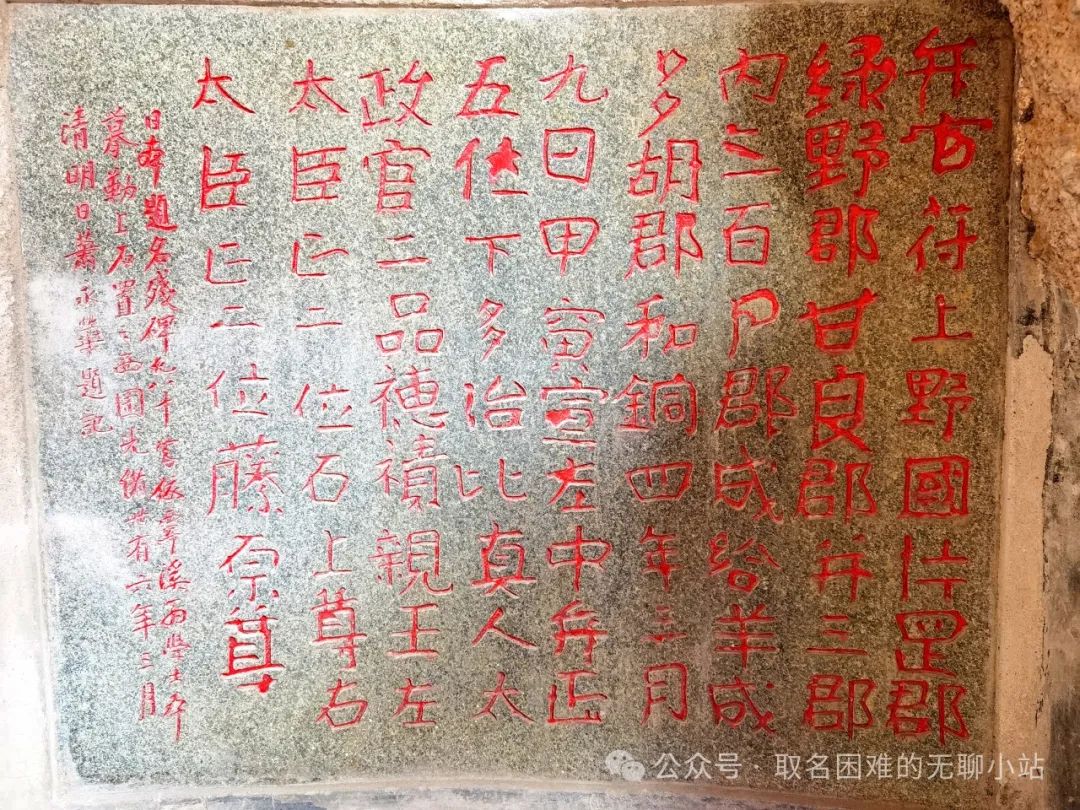 弁官符上野國片罡郡
緑野郡甘良郡并三郡
内三百尸郡成給羊成
多胡郡和銅四年三月
九日甲寅宣左中弁正
五位下多治比真人太
政官二品穂積親王左
太臣正二位石上尊右
太臣正二位藤原尊
日本題名殘碑凡八十
摹勒上石置之西園光緒廿有六年三月
清明日蕭永華題記
公众号·取名困难的无聊小站